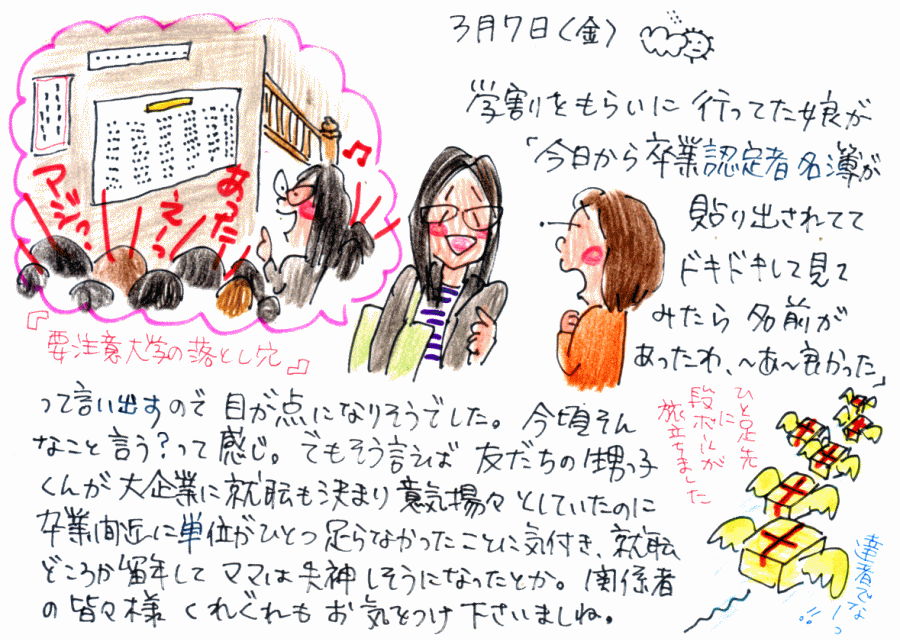 3月7日(金)
学割りをもらいに行ってた娘が
「今日から卒業認定者名簿が
貼り出されてて
ドキドキして見て
みたら名前が
あったわ、～あ～良かった」
マジっ、
えーっ
あった～
『要注意大学の落とし穴』
って言い出すので目が点になりそうでした。今頃そん
なこと言う?って感じ。でもそう言えば友だちの甥っ子
くんが大企業に就転も決まり意気揚々としていたのに
卒業間近に単位がひとつ足らなかったことに気付き、就転
どころか留年してママは失神しそうになったとか。関係者
の皆々様くれぐれもお気をつけ下さいましね。
ひと足先
に
段ボールが
旅立ちました
達者でな
ーっ!!